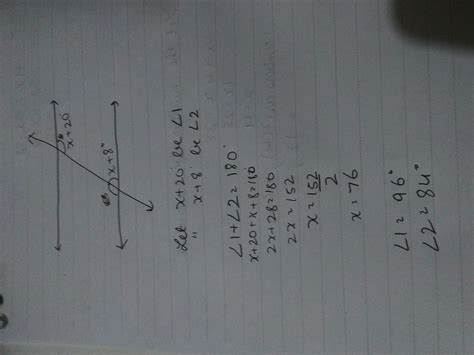 x+20°
x+8°
Let x+20 be ∠1
" x+8 be ∠2
∠1+∠2=180°
x+20+x+8=180
2x+28=180
2x=152
x=152/2
x=76
∠1=96°
∠2=84°